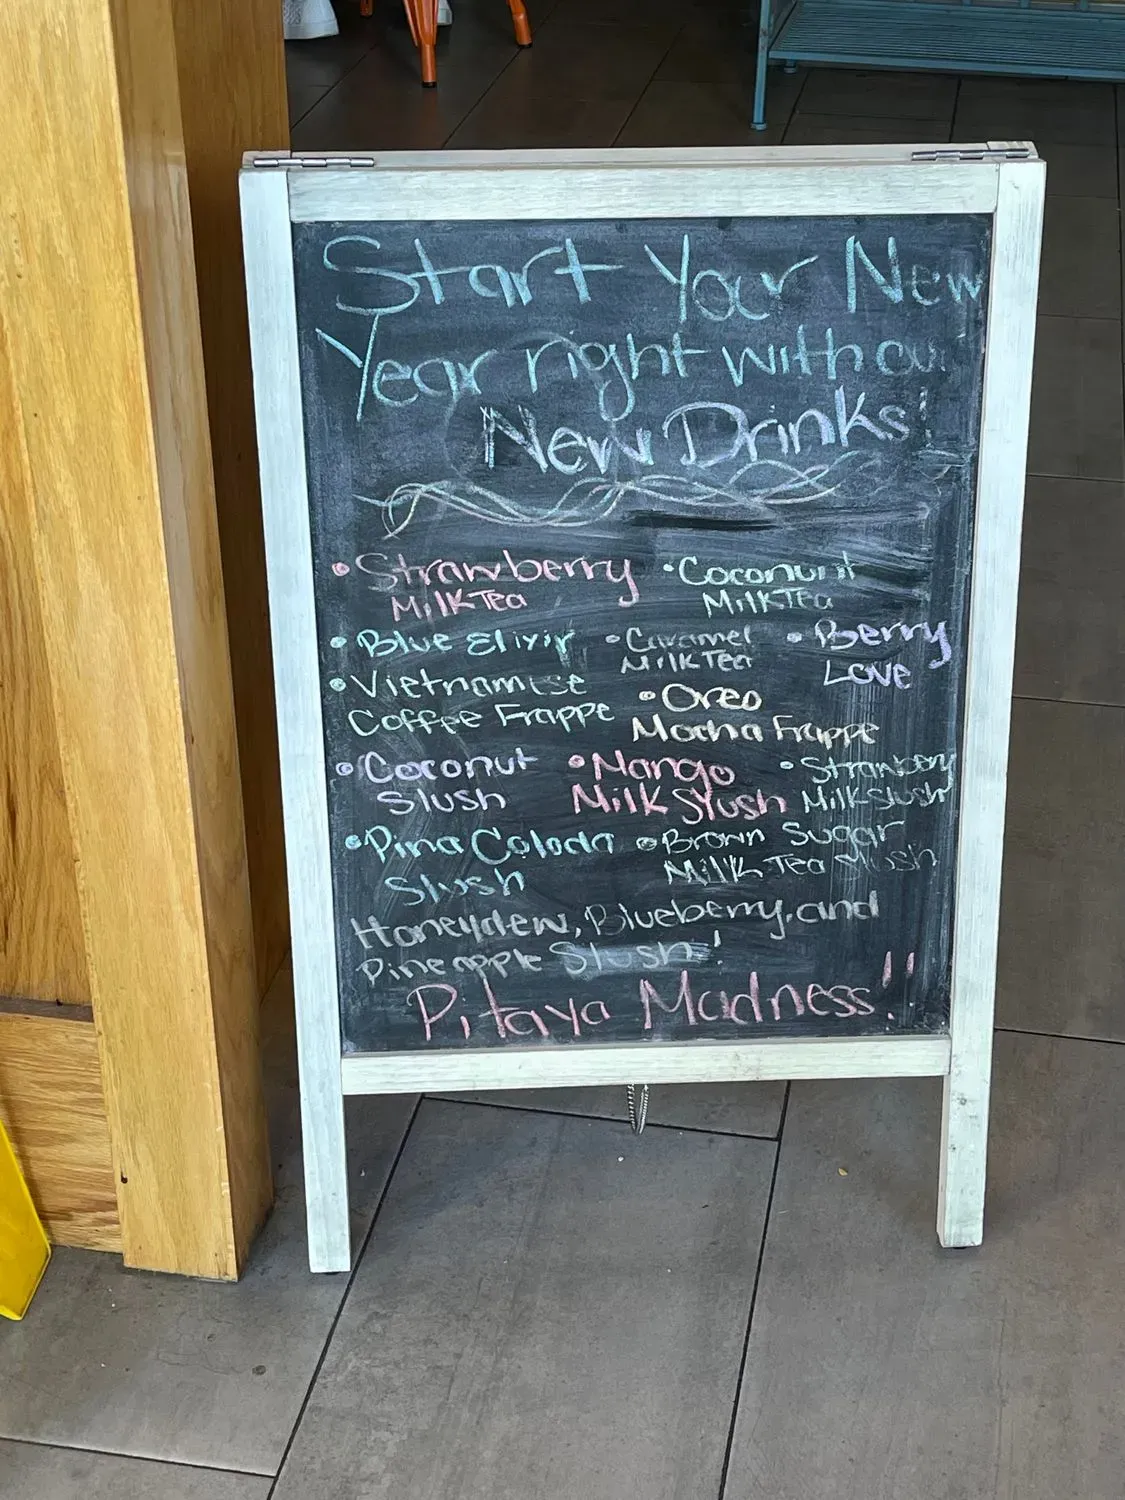 Start Your New
Year right with our
New Drinks!
• Strawberry
Milk Tea
• Coconunt
Milk Tea
• Blue Elixir
• Caramel
Milk Tea
• Berry
Love
• Vietnamese
Coffee Frappe
• Oreo
Mocha Frappe
• Coconut
Slush
• Mango
Milk Slush
• Strawberry
Milk Slush
• Pina Colada
Slush
• Brown Sugar
Milk Tea Slush
Honeydew, Blueberry, and
Pineapple Slush!
Pitaya Madness!!